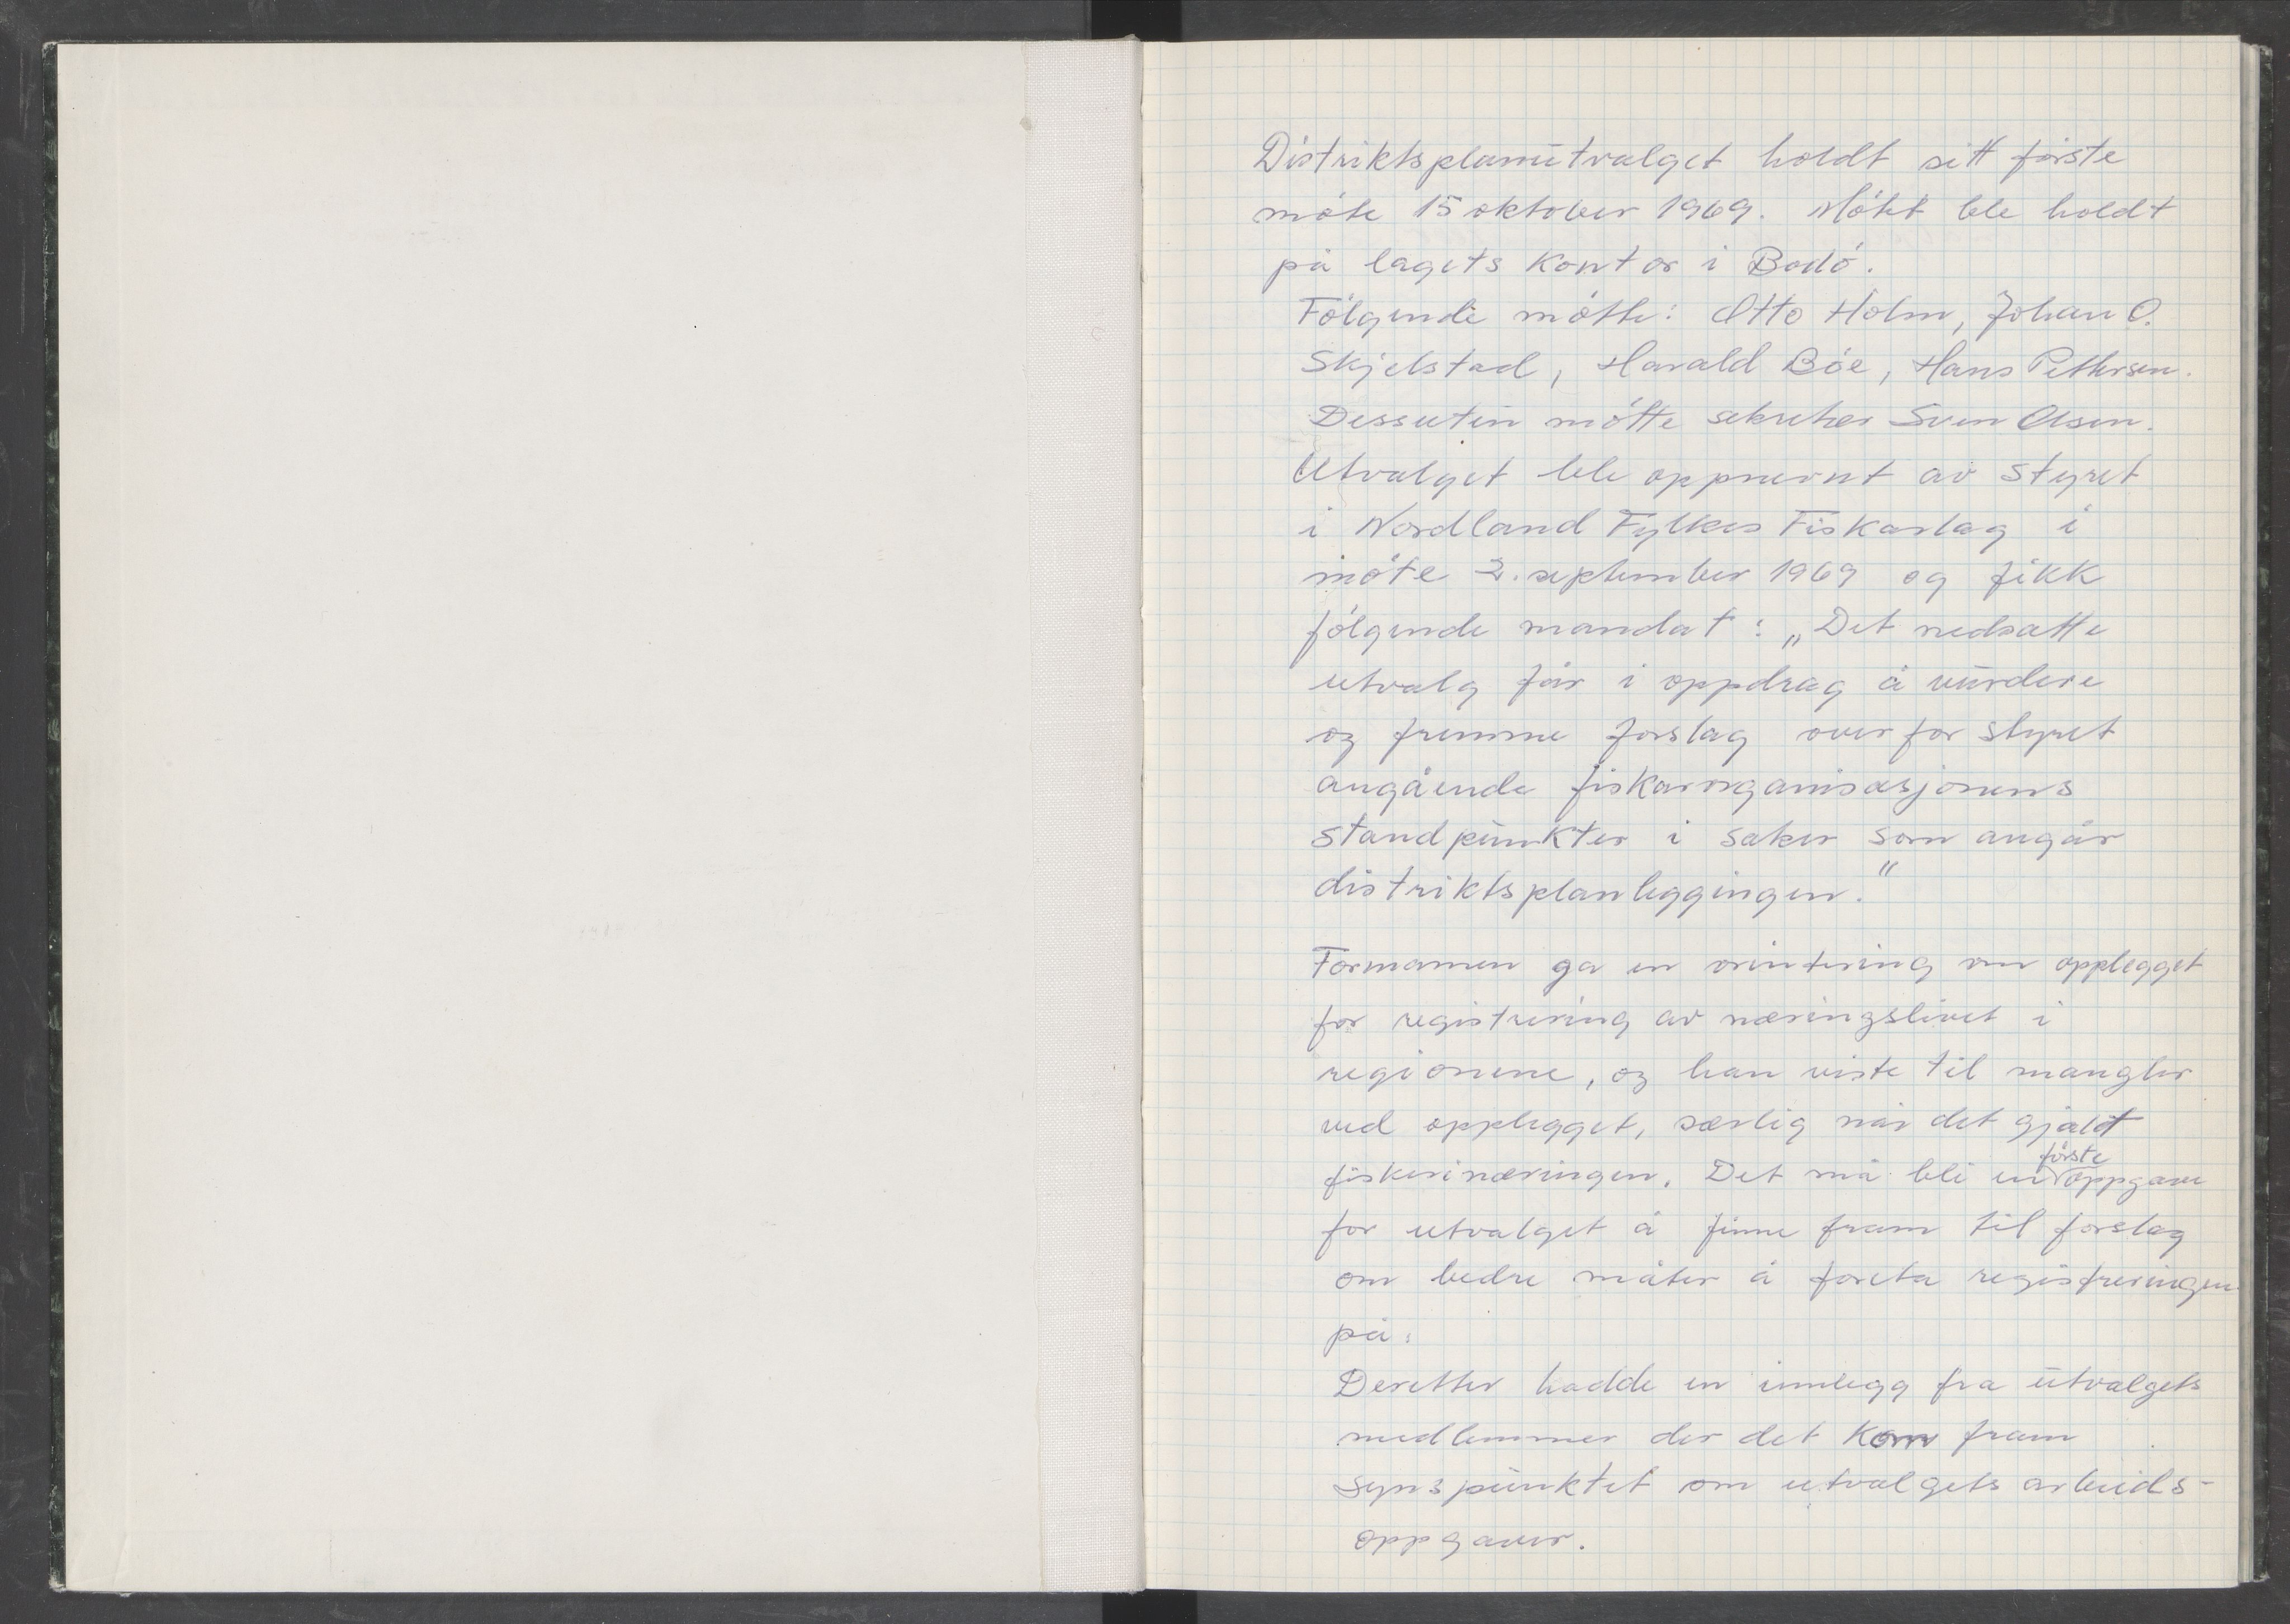 Distriktsplanutvalget holdt sitt første
møte 15 oktober 1969. Møtet ble holdt
på lagets kontor i Bodø.
Følgende møtte: Otto Holm, Johan O.
Skjelstad, Harald Bøe, Hans Pettersen.
Dessuten møtte sekretær Sven Olsen.
Utvalget ble oppnevnt av styret
i Nordland Fylkes Fiskarlag i
møte 2. september 1969 og fikk
følgende mandat: „Det nedsatte
utvalg får i oppdrag å vurdere
og fremme forslag overfor styret
angående fiskarorganisasjonens
standpunkter i saker som angår
distriktsplanleggingen."
Formannen ga en orientering om opplegget
for registrering av næringslivet i
regionene, og han viste til mangler
ved opplegget, særlig når det gjaldt
fiskerinæringen. Det må bli en første oppgave
for utvalget å finne fram til forslag
om bedre måter å foreta registreringen
på.
Deretter hadde en innlegg fra utvalgets
medlemmer der det kom fram
synspunktet om utvalgets arbeids-
oppgaver.